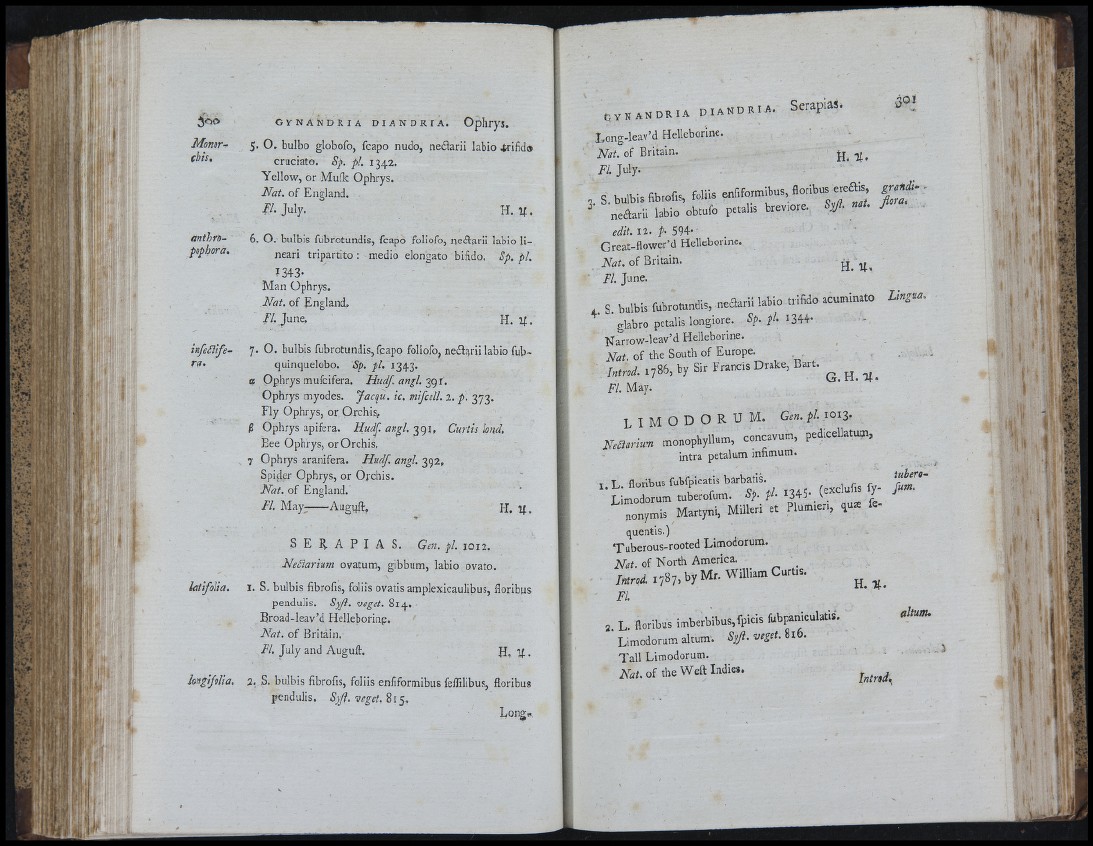 300 GYNANDRIA DIANDRIA. Ophrys.
Monor- 5. O. bulbo globoſo, ſcapo nudo, nectarii labio trifido
chis. cruciato. Sp. pl. 1342.
Yellow, or Muſk Ophrys.
Nat. of England.
Fl. July. H. ♃.
anthro- 6. O. bulbis ſubrotundis, ſcapo folioſo, nectarii labio li-
pophora. neari tripartito: medio elongato bifido. Sp. pl.
1343.
Man Ophrys.
Nat. of England.
Fl. June. H. ♃.
inſectife- 7. O. bulbis ſubrotundis, ſcapo folioſo, nectarii labio ſub-
ra. quinquelobo. Sp. pl. 1343.
α Ophrys muſcifera. Hudſ. angl. 391.
Ophrys myodes. Jacqu. ic. miſcell. 2. p. 373.
Fly Ophrys, or Orchis.
β Ophrys apifera. Hudſ. angl. 391. Curtis lond.
Bee Ophrys, or Orchis.
γ Ophrys aranifera. Hudſ. angl. 392.
Spider Ophrys, or Orchis.
Nat. of England.
Fl. May——Auguſt. H. ♃.
SERAPIAS. Gen. pl. 1012.
Nectarium ovatum, gibbum, labio ovato.
latifolia. 1. S. bulbis fibroſis, foliis ovatis amplexicaulibus, floribus
pendulis. Syſt. veget. 814.
Broad-leav'd Helleborine.
Nat. of Britain.
Fl. July and Auguſt. H. ♃.
longifolia. 2. S. bulbis fibroſis, foliis enſiformibus ſeſſilibus, floribus
pendulis. Syſt. veget. 815.
Long-
GYNANDRIA DIANDRIA. Serapias. 301
Long-leav'd Helleborine.
Nat. of Britain.
Fl. July. H. ♃.
3. S. bulbis fibroſis, foliis enſiformibus, floribus erectis, grandi-
nectarii labio obtuſo petalis breviore. Syſt. nat. flora.
edit. 12. p. 594.
Great-flower'd Helleborine.
Nat. of Britain.
Fl. June. H. ♃.
4. S. bulbis ſubrotundis, nectarii labio trifido acuminato Lingua.
glabro petalis longiore. Sp. pl. 1344.
Narrow-leav'd Helleborine.
Nat. of the South of Europe.
Introd. 1786, by Sir Francis Drake, Bart.
Fl. May. G. H. ♃.
LIMODORUM. Gen. pl. 1013.
Nectarium monophyllum, concavum, pedicellatum,
intra petalum infimum.
1. L. floribus ſubſpicatis barbatis. tubero-
Limodorum tuberoſum. Sp. pl. 1345. (excluſis ſy- ſum.
nonymis Martyni, Milleri et Plumieri, quæ ſe-
quentis.)
Tuberous-rooted Limodorum.
Nat. of North America.
Introd. 1787, by Mr. William Curtis.
Fl. H. ♃.
2. L. floribus imberbibus, ſpicis ſubpaniculatis. altum.
Limodorum altum. Syſt. veget. 816.
Tall Limodorum.
Nat. of the Weſt Indies.
Introd.